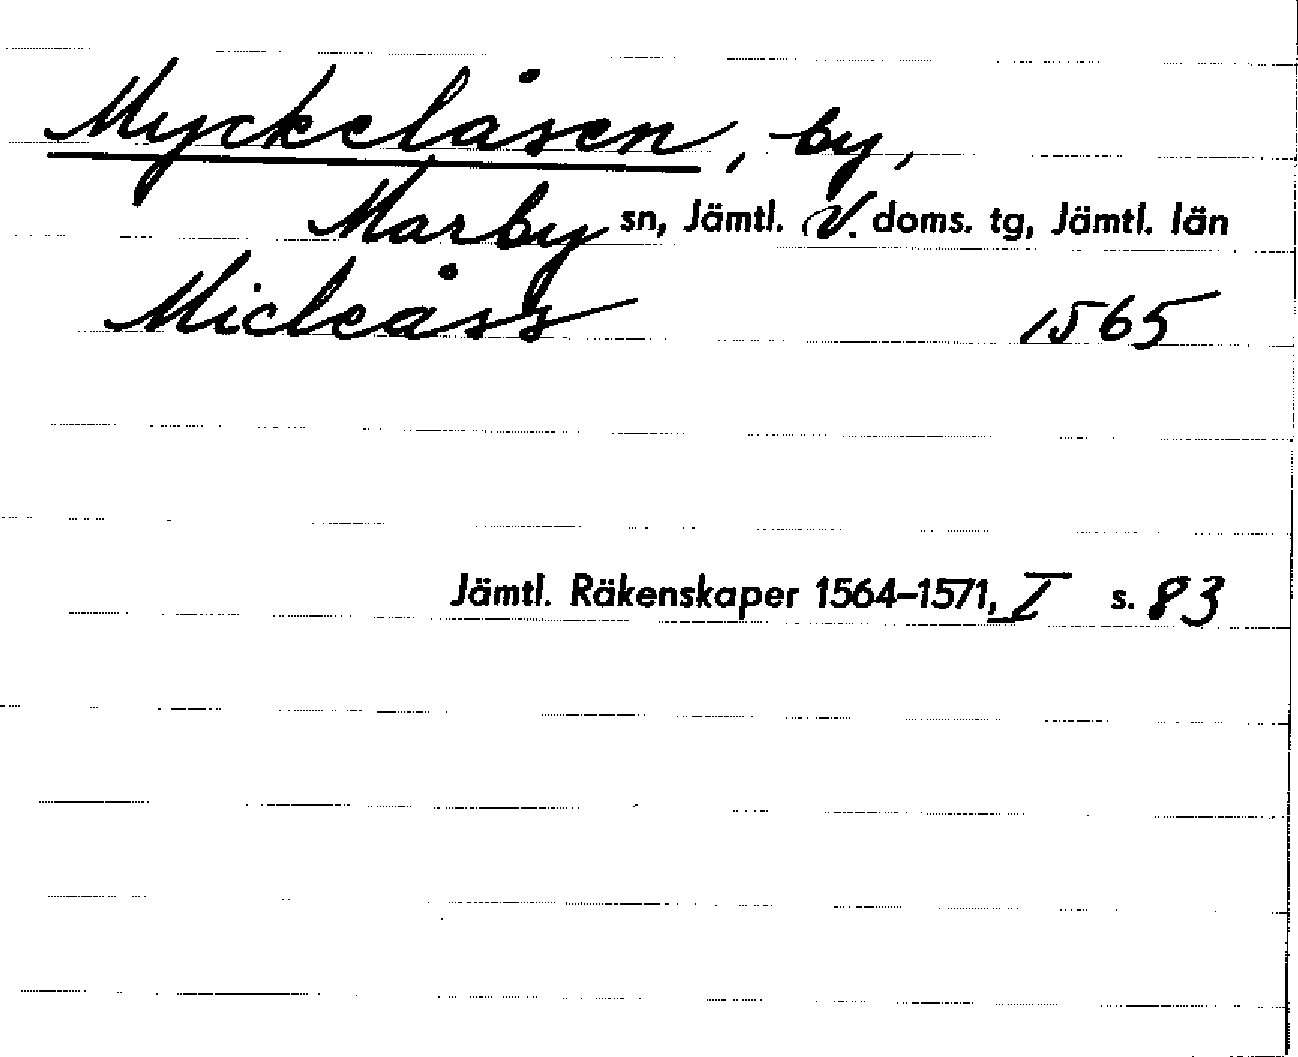 Myckelåsen, by,
Marby sn, Jämtl. V. doms. tg, Jämtl. län
Micleåss 1565
Jämtl. Räkenskaper 1564–1571, I s. 83